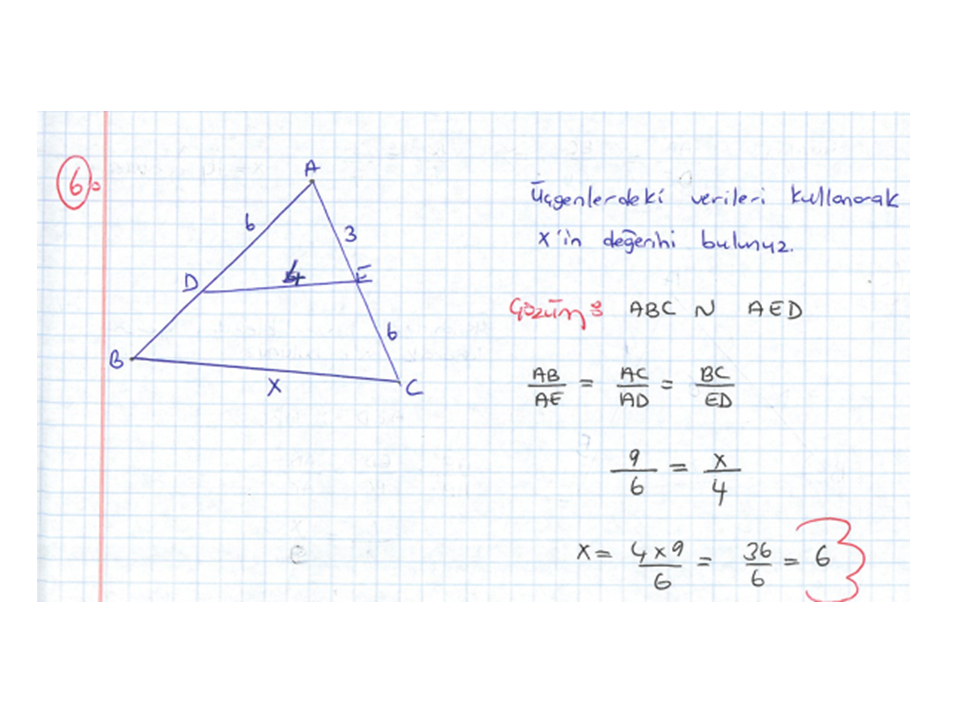 6.
A
6
3
D
4
E
6
B
x
C
Üçgenlerdeki verileri kullanarak
x'in değerini bulunuz.
Çözüm: ABC ~ AED
AB/AE = AC/AD = BC/ED
9/6 = x/4
x = 4x9/6 = 36/6 = 6